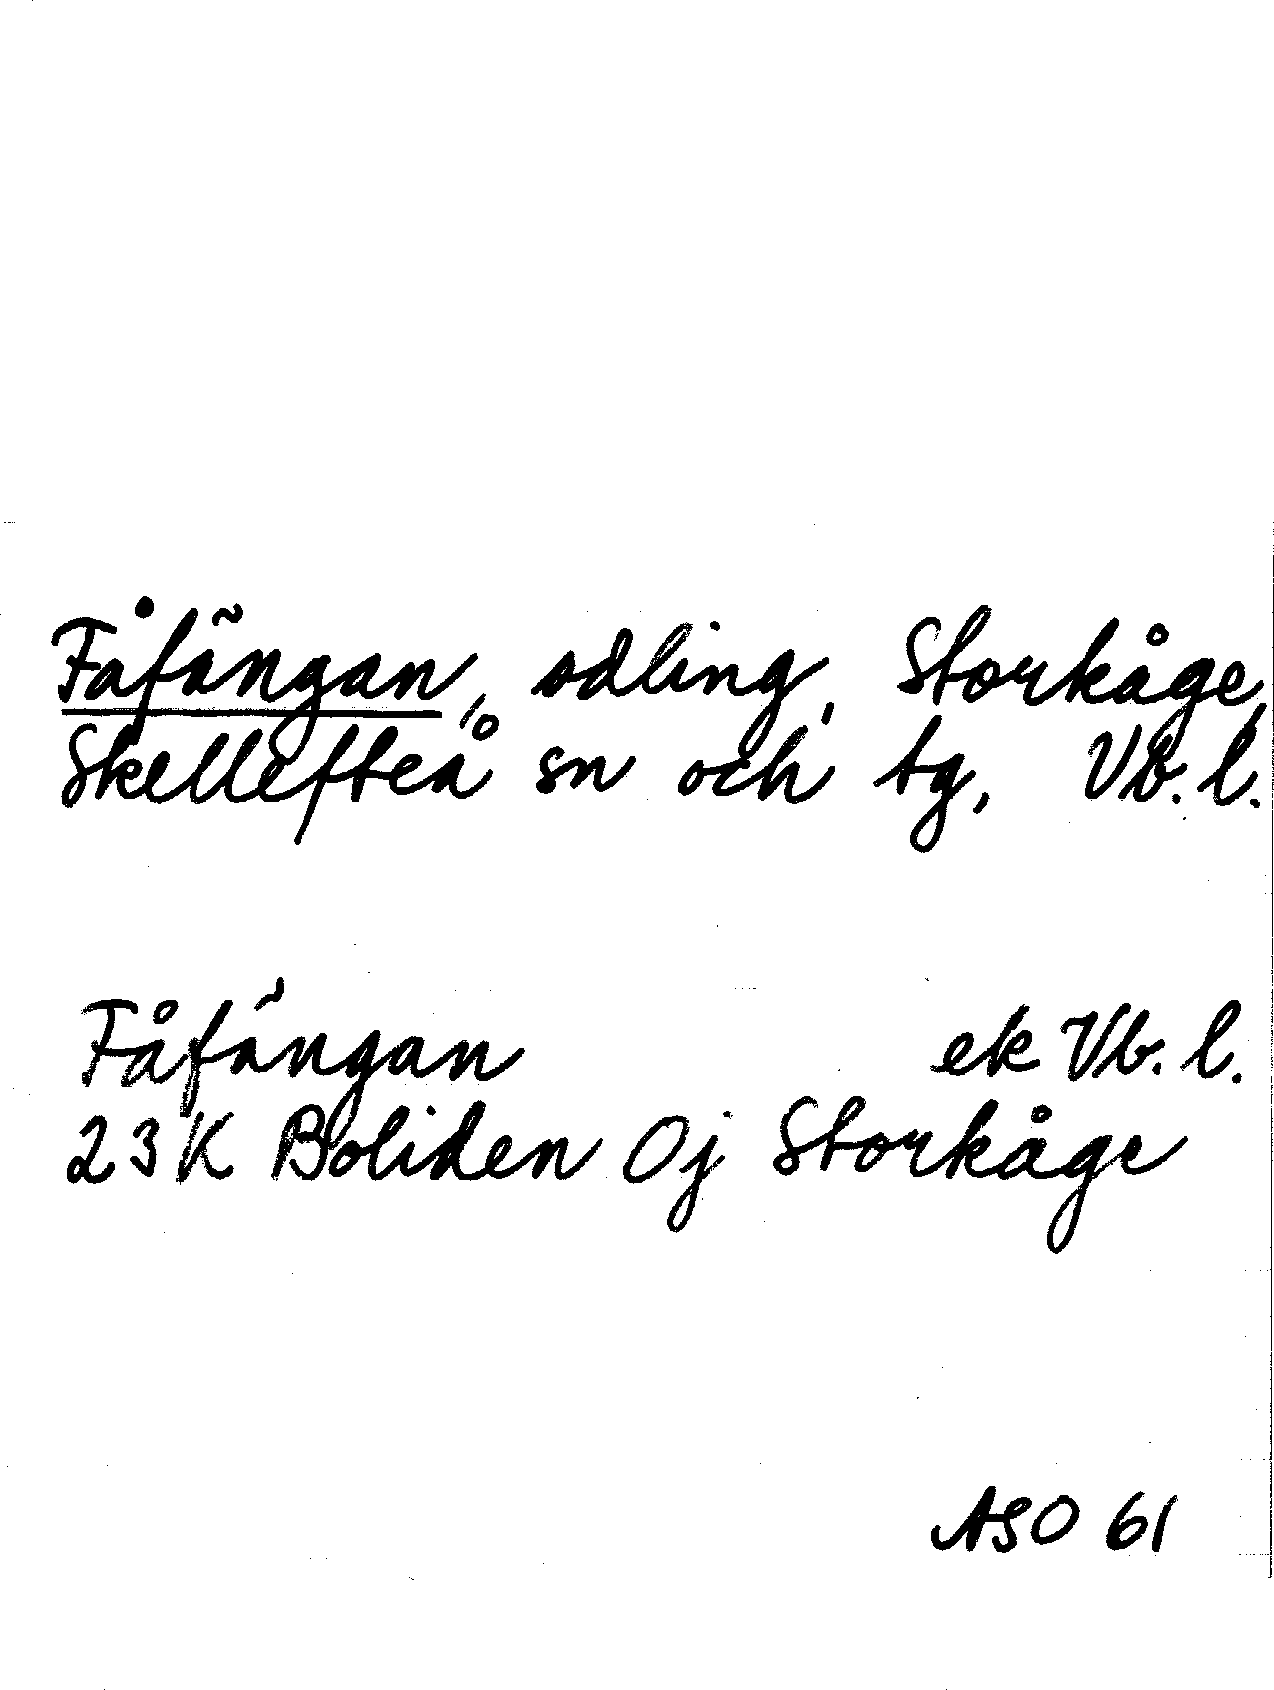 Fåfängan, odling, Storkåge,
Skellefteå sn och tg, Vb. l.
Fåfängan ek Vb. l.
23K Boliden 0j Storkåge
ASO 61